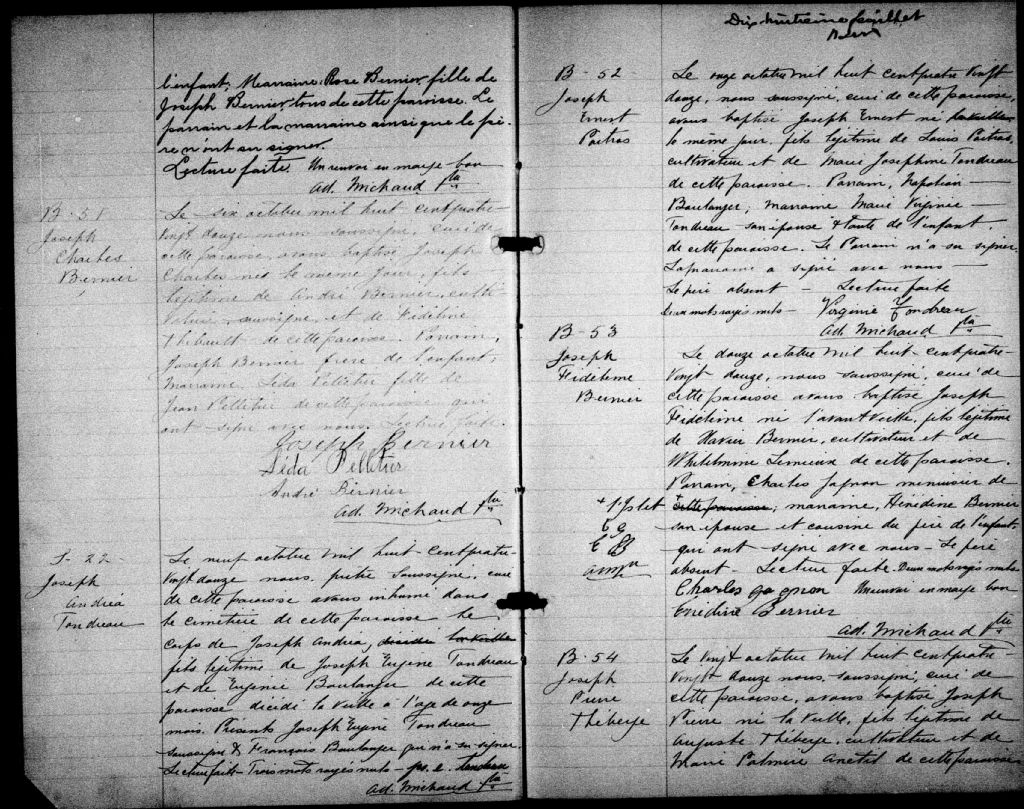 l'enfant, Marraine, Rose Bernier, fille de
Joseph Bernier, tous de cette paroisse. Le
parrain et la marraine ainsi que le pè-
re n'ont su signer.
Lecture faite. Un renvoi en marge bon
Ad. Michaud Ptre
B - 51
Joseph
Charles
Bernier
Le six octobre mil huit cent quatre
vingt douze nous soussigné, curé de
cette paroisse, avons baptisé Joseph
Charles né le même jour, fils
légitime de André Bernier, culti-
vateur soussigné, et de Fidéline
Thibault de cette paroisse. Parrain,
Joseph Bernier frère de l'enfant;
Marraine Léda Pelletier fille de
Jean Pelletier de cette paroisse qui
ont signé avec nous. Lecture faite.
Joseph Bernier
Léda Pelletier
André Bernier
Ad. Michaud Ptre
S - 22
Joseph
Andréa
Tondreau
Le neuf octobre mil huit-cent quatre-
vingt douze nous, prêtre soussigné, curé
de cette paroisse avons inhumé dans
le cimetière de cette paroisse le
corps de Joseph Andréa, décédé la veille
fils légitime de Joseph Eugène Tondreau
et de Eugénie Boulanger de cette
paroisse décédé la veille à l'age de onze
mois. Présents Joseph Eugène Tondreau
soussigné & François Boulanger qui n'a su signer.
Lecture faite - Trois mots rayés nuls -
Ad. Michaud Ptre
Dix huitième feuillet
B - 52
Joseph
Ernest
Poitras
Le onze octobre mil huit cent quatre vingt
douze, nous soussigné, curé de cette paroisse,
avons baptisé Joseph Ernest né la veille
le même jour, fils légitime de Louis Poitras,
cultivateur et de Marie Josephine Tondreau
de cette paroisse. Parrain, Napoléon
Boulanger, marraine Marie Virginie
Tondreau son épouse & tante de l'enfant,
de cette paroisse. Le Parrain n'a su signer.
La marraine a signé avec nous -
Le père absent - Lecture faite
Deux mots rayés nuls - Virginie Tondreau
Ad. Michaud Ptre
B - 53
Joseph
Fidelème
Bernier
Le douze octobre mil huit-cent quatre-
vingt douze, nous soussigné, curé de
cette paroisse avons baptisé Joseph
Fidelème né l'avant veille, fils légitime
de Xavier Bernier, cultivateur et de
Whilelmine Lemieux de cette paroisse.
Parrain, Charles Gagnon menuisier de
+ l'Islet cette paroisse; marraine, Hénédine Bernier
son épouse et cousine du père de l'enfant,
qui ont signé avec nous - Le père
absent - Lecture faite. Deux mots rayés nuls
Charles gagnon Un renvoi en marge bon
Enedine Bernier
Ad. Michaud Ptre
B - 54
Joseph
Pierre
Theberge
Le vingt octobre mil huit cent quatre-
vingt douze nous, soussigné, curé de
cette paroisse, avons baptisé Joseph
Pierre né la veille, fils légitime de
Auguste Théberge, cultivateur et de
Marie Palmire Anctil de cette paroisse